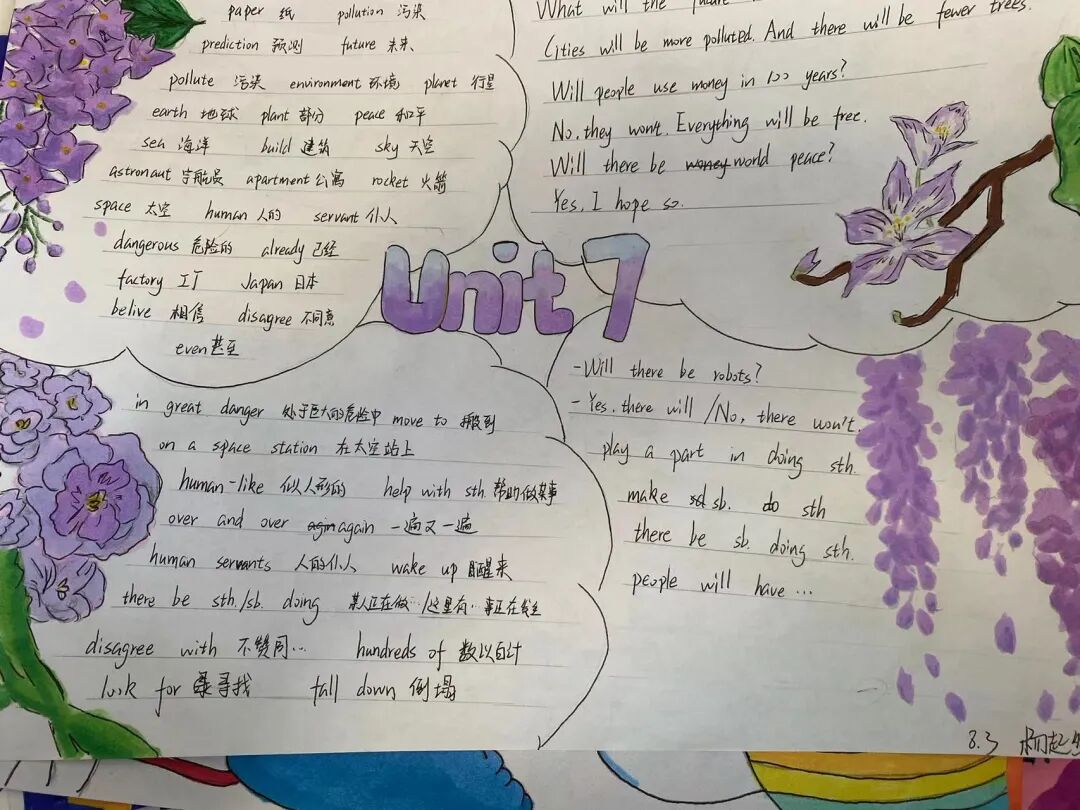 paper 纸 pollution 污染
prediction 预测 future 未来
pollute 污染 environment 环境 planet 行星
earth 地球 plant 部分 peace 和平
sea 海洋 build 建筑 sky 天空
astronaut 宇航员 apartment 公寓 rocket 火箭
space 太空 human 人的 servant 仆人
dangerous 危险的 already 已经
factory 工厂 Japan 日本
belive 相信 disagree 不同意
even 甚至
What will the future
Cities will be more polluted. And there will be fewer trees.
Will people use money in 100 years?
No, they won't. Everything will be free.
Will there be money world peace?
Yes, I hope so.
Unit 7
in great danger 处于巨大的危险中 move to 搬到
on a space station 在太空站上
human-like 似人形的 help with sth. 帮助做某事
over and over agin again 一遍又一遍
human servants 人的仆人 wake up 醒来
there be sth./sb. doing 某人正在做…/这里有…事正在发生
disagree with 不赞同… hundreds of 数以百计
look for 寻找 fall down 倒塌
-Will there be robots?
-Yes, there will /No, there won't.
play a part in doing sth.
make sb. do sth
there be sb. doing sth.
people will have ...
8.3 杨起